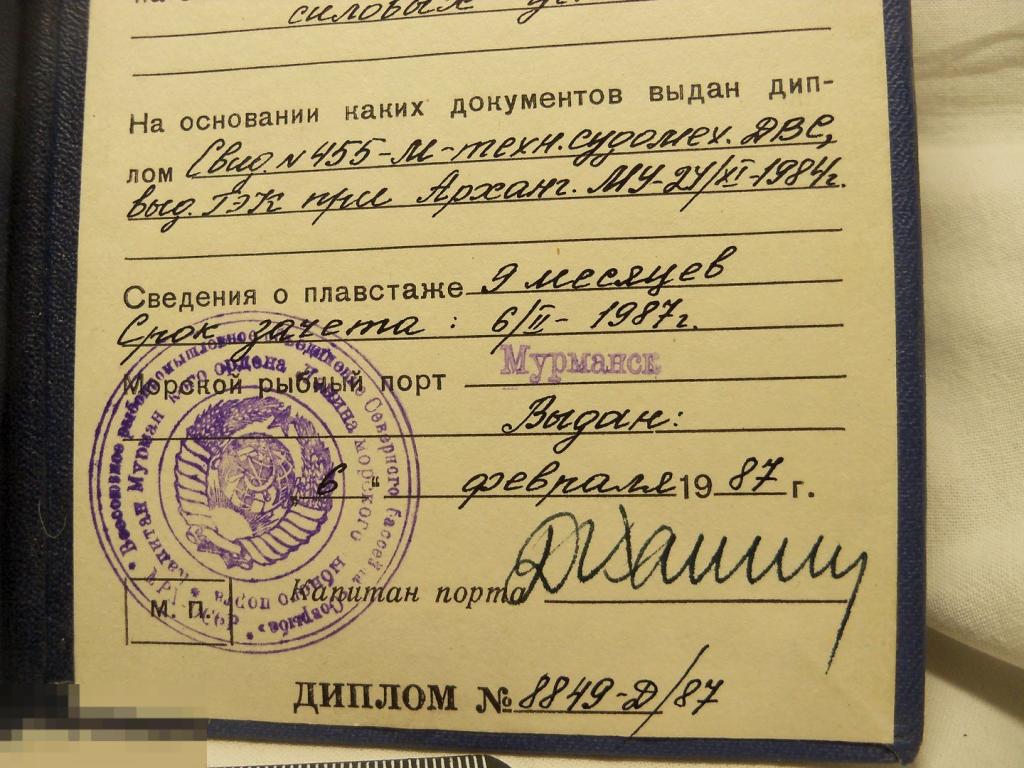 силовых
На основании каких документов выдан дип-
лом Свид. №455-М-техн. судомех. ДВС,
выд. ГЭК при Арханг. МУ-27/XI-1984г.
Сведения о плавстаже 9 месяцев
Срок зачета: 6/II-1987г.
Морской рыбный порт Мурманск
Выдан:
„6“ февраля 1987 г.
Капитан порта
М. П.
ДИПЛОМ № 8849-Д/87
Всесоюзное рыбопромышленное объединение Северного бассейна „Севрыба"
Капитан Мурманского ордена Ленина морского рыбного порта